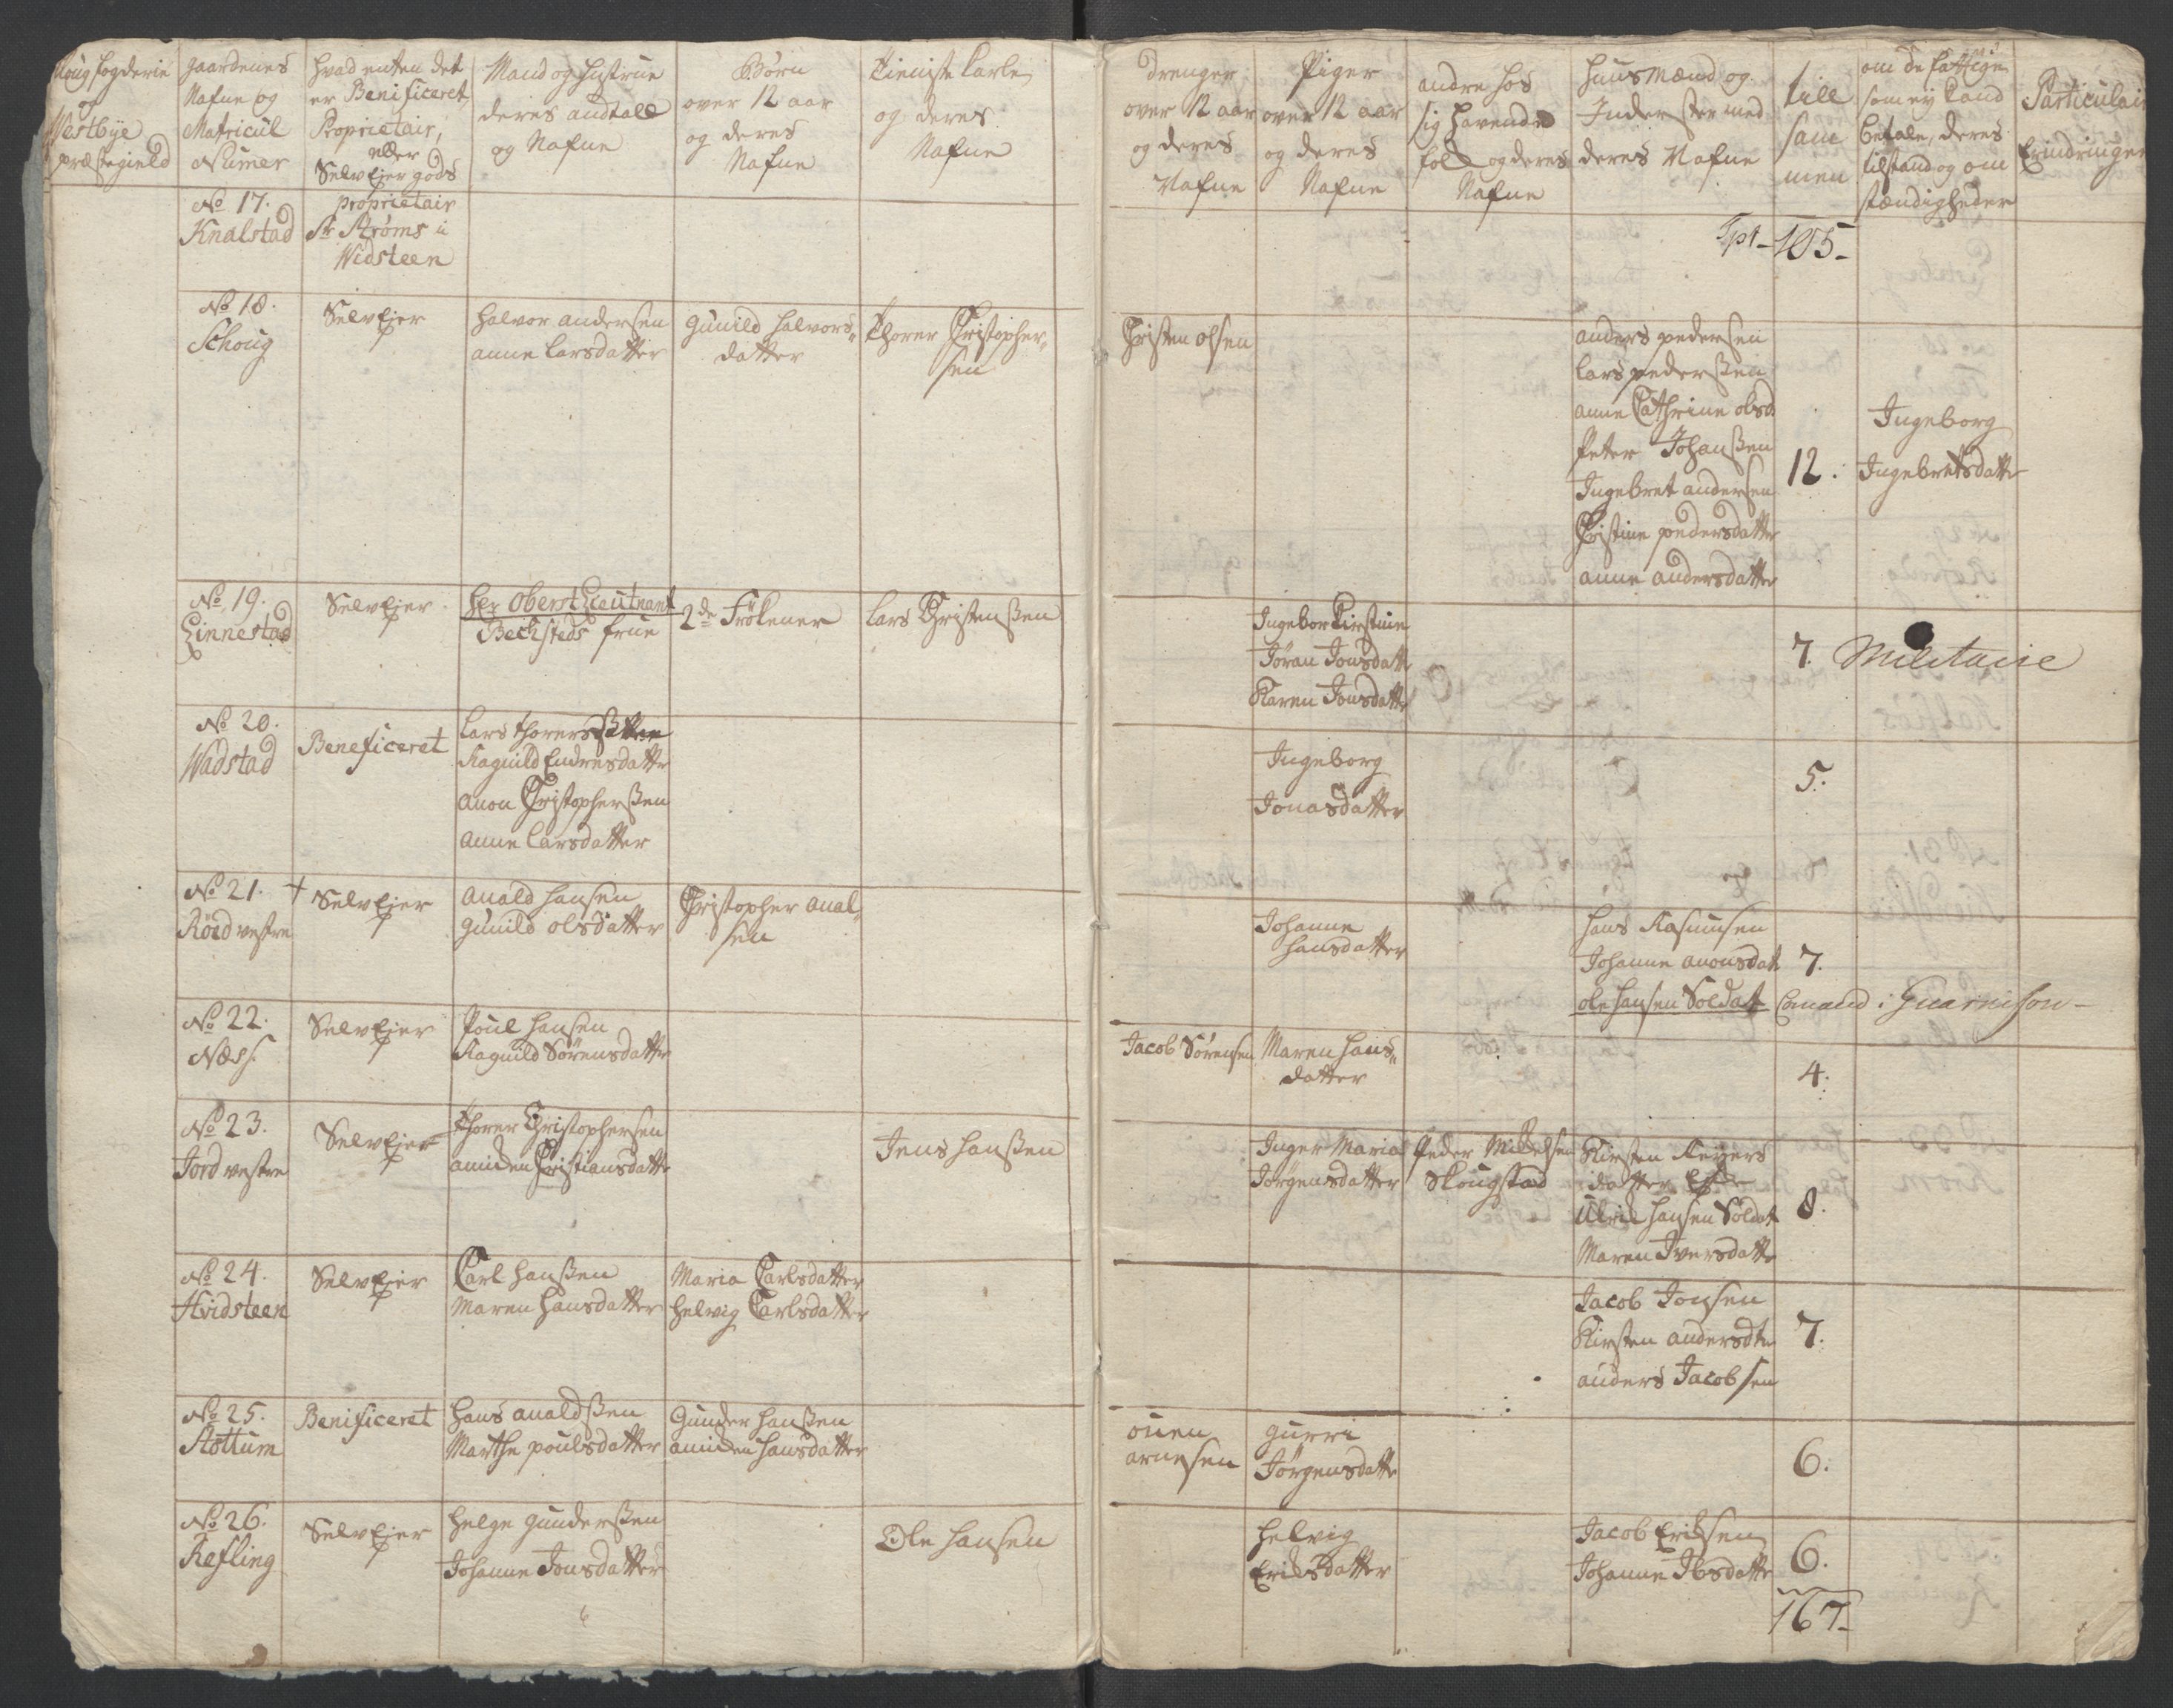 Moug fogderie
og
Westbye
præstegield
gaardenes
Nafne og
Matricul
Numer
hvad enten det
er Benificeret,
Proprietair,
eller
SelvEjer gods
Mand og hustrue
deris andtall
og Nafne
Børn
over 12 aar
og deres
Nafne
Tieniste Carle
og deres
Nafne
drenger
over 12 aar
og deres
Nafne
Piger
over 12 aar
og deres
Nafne
andre hos
sig havende
folk og deres
Nafne
huusMænd og
Inderster med
deres Nafne
till
sam
men
om de fattige
som ej kand
betale, deres
tilstand og om
stændigheder
Particulair
Erindringer
No 17.
Knalstad
proprietair
Sr Strøms i
Widsteen
Tpt - 105 -
No 18.
Schoug
SelvEjer
halvor andersen
anne Larsdatter
Gunild halvors-
datter
Thorer Christopher-
sen
Christen olsen
anders pedersen
Lars pederssen
anne Cathrine olsd
Peter Johanssen
Ingebret andersen
Christine pedersdatter
anne andersdatter
12.
Ingeborg
Ingebretsdatter
No 19.
Linnestad
SelvEjer
hr OberstLieutnant
Bechsteds frue
2de Frökener
Lars Christenssen
Ingebor Kirstine
Jöran Jonsdatt
Karen Jonsdatter
7.
Militaire
No 20.
Wadstad
Beneficeret
Lars thorerssen
Ragnild Endresdatter
anon Christopherssen
anne Larsdatter
Ingeborg
Jonasdatter
5.
No 21. +
Röed vestre
SelvEjer
anald hansen
Gunild olsdatter
Christopher anal-
sen
Johanne
hansdatter
hans Rasmusen
Johanne anonsdat
ole hansen Soldat
7.
Comand i Guarnison -
No 22.
Næss.
SelvEjer
Poul hansen
Ragnild Sörensdatter
Jacob Sörensen
Maren hans-
datter
4.
No 23.
Jord vestre
SelvEjer
Thorer Christophersen
amiden Christiansdatter
Jens hanssen
Inger Maria
Jörgensdatter
Peder Mikelsen
Skougstad
Kirsten Reyers
datter
Ulric hansen Soldat
Maren Iversdatter
8.
No 24.
Hvidsteen
SelvEjer
Carl hanssen
Maren hansdatter
Maria Carlsdatter
helvig Carlsdatter
Jacob Jonsen
Kirsten andersdtr
anders Jacobsen
7.
No 25.
Stottum
Benificeret
hans analdssen
Marthe poulsdatter
Gunder hanssen
amiden hansdatter
ouen
arnesen
gurri
Jörgensdatter
6.
No 26.
Refling
SelvEjer
helge gunderssen
Johanne Jonsdatter
Ole hansen
helvig
Eriksdatter
Jacob Eriksen
Johanne Ibsdatter
6.
167 -